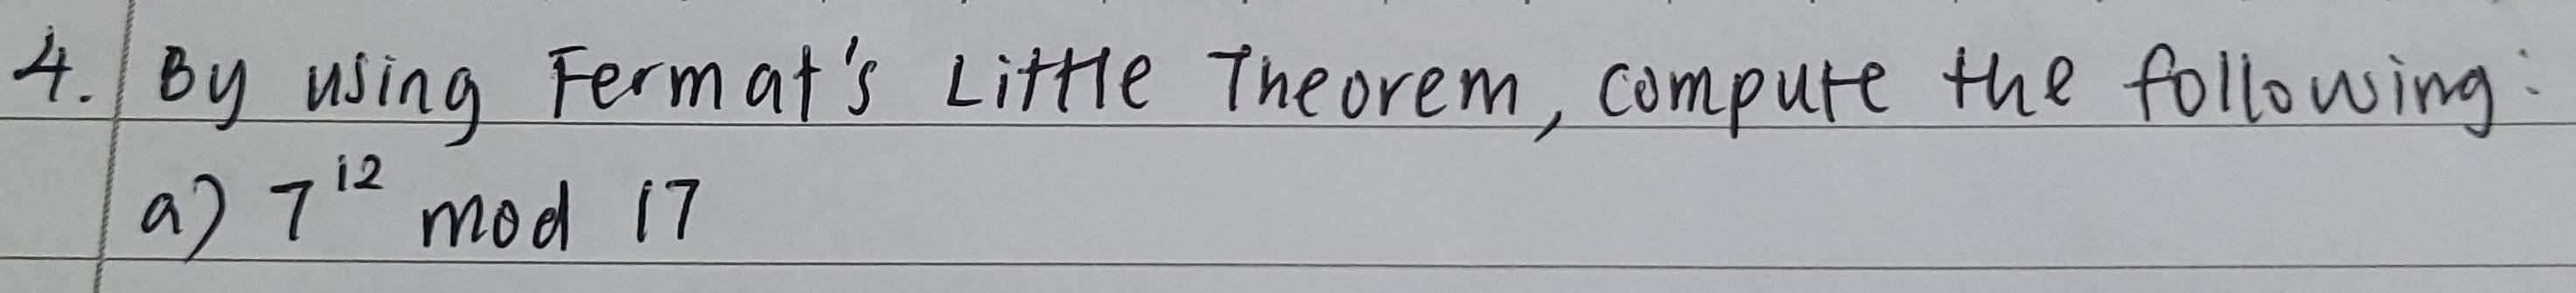 4. By using Fermat's Little Theorem, compute the following:
a) 7¹² mod 17